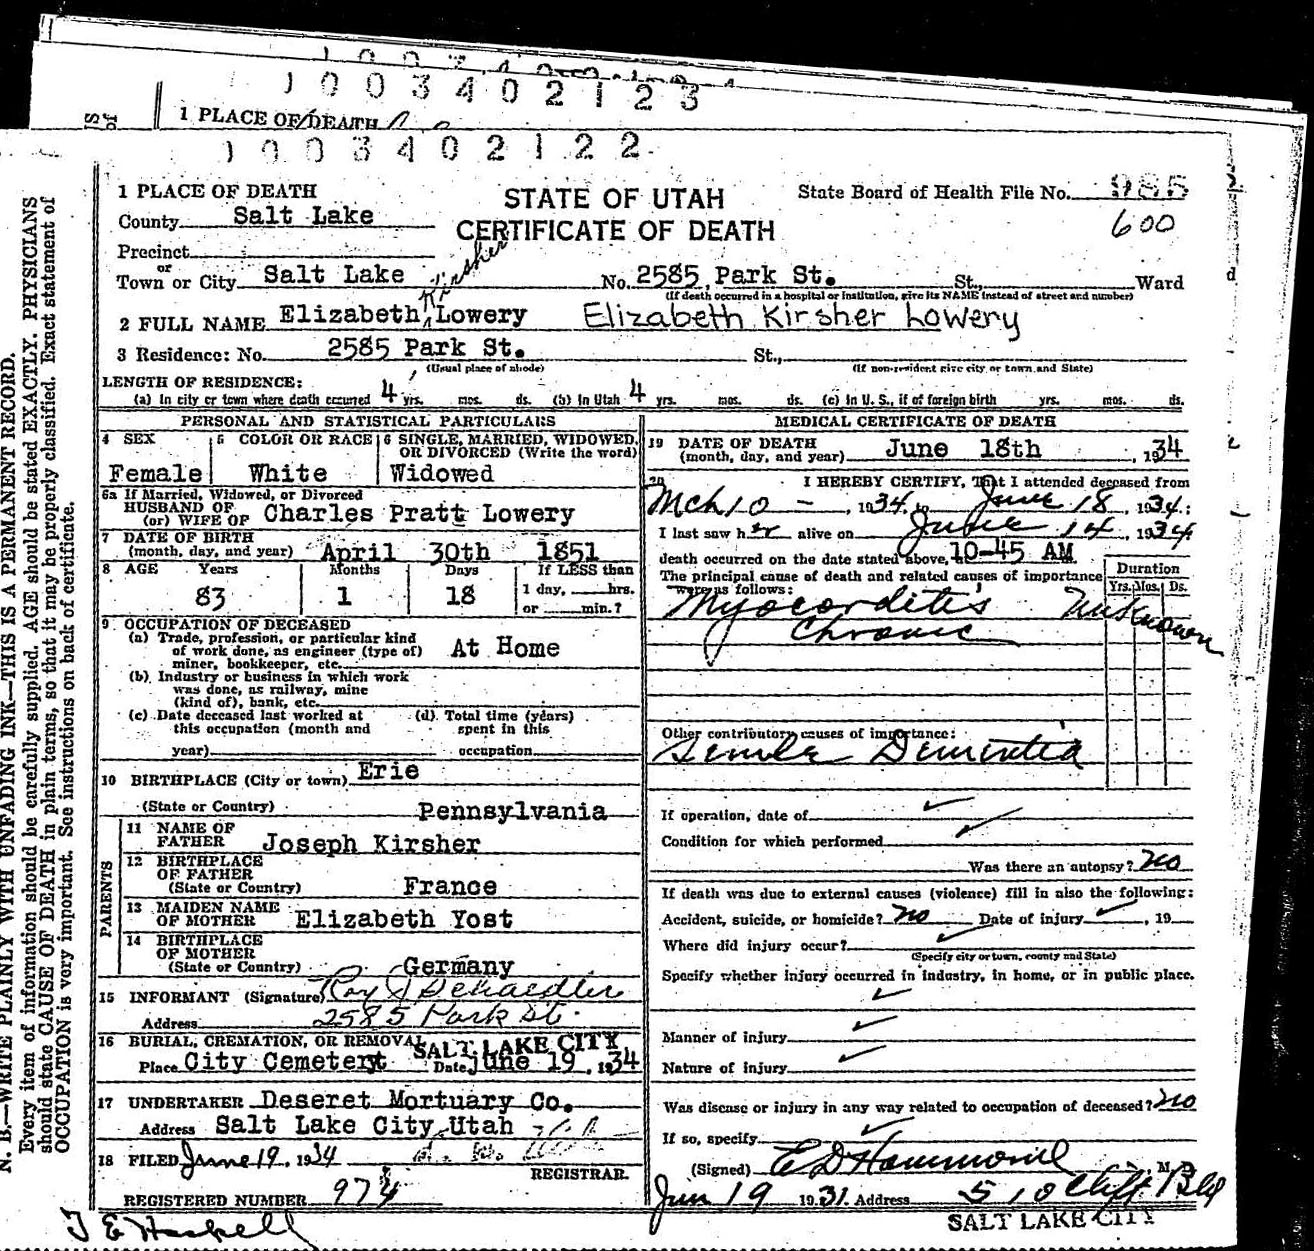 1 0 0 3 4 0 2 1 2 3
1 PLACE OF DEATH
1 0 0 3 4 0 2 1 2 2
N. B.—WRITE PLAINLY WITH UNFADING INK—THIS IS A PERMANENT RECORD.
Every item of information should be carefully supplied. AGE should be stated EXACTLY. PHYSICIANS
should state CAUSE OF DEATH in plain terms, so that it may be properly classified. Exact statement of
OCCUPATION is very important. See instructions on back of certificate.
1 PLACE OF DEATH
County Salt Lake
Precinct
or
Town or City Salt Lake
STATE OF UTAH
CERTIFICATE OF DEATH
State Board of Health File No. 985
600
No. 2585 Park St. St., Ward
(If death occurred in a hospital or institution, give its NAME instead of street and number)
Kirsher
2 FULL NAME Elizabeth Lowery Elizabeth Kirsher Lowery
3 Residence: No. 2585 Park St. St.,
(Usual place of abode) (If non-resident give city or town and State)
LENGTH OF RESIDENCE:
(a) In city or town where death occurred 4 yrs. mos. ds. (b) In Utah 4 yrs. mos. ds. (c) In U. S., if of foreign birth yrs. mos. ds.
PERSONAL AND STATISTICAL PARTICULARS
4 SEX 5 COLOR OR RACE 6 SINGLE, MARRIED, WIDOWED, OR DIVORCED (Write the word)
Female White Widowed
6a If Married, Widowed, or Divorced
HUSBAND OF
(or) WIFE OF Charles Pratt Lowery
7 DATE OF BIRTH
(month, day, and year) April 30th 1851
8 AGE Years Months Days If LESS than
83 1 18 1 day, hrs.
or min.?
9 OCCUPATION OF DECEASED
(a) Trade, profession, or particular kind
of work done, as engineer (type of) At Home
miner, bookkeeper, etc.
(b) Industry or business in which work
was done, as railway, mine
(kind of), bank, etc.
(c) Date deceased last worked at (d) Total time (years)
this occupation (month and spent in this
year) occupation
10 BIRTHPLACE (City or town) Erie
(State or Country) Pennsylvania
PARENTS
11 NAME OF
FATHER Joseph Kirsher
12 BIRTHPLACE
OF FATHER
(State or Country) France
13 MAIDEN NAME
OF MOTHER Elizabeth Yost
14 BIRTHPLACE
OF MOTHER
(State or Country) Germany
15 INFORMANT (Signature) Roy J Schaedler
Address 2585 Park St.
16 BURIAL, CREMATION, OR REMOVAL SALT LAKE CITY
Place City Cemetery Date June 19, 1934
17 UNDERTAKER Deseret Mortuary Co.
Address Salt Lake City Utah
18 FILED June 19, 1934
REGISTRAR.
REGISTERED NUMBER 974
T E Haskell
MEDICAL CERTIFICATE OF DEATH
19 DATE OF DEATH
(month, day, and year) June 18th, 1934
20 I HEREBY CERTIFY, That I attended deceased from
Mch 10 -, 1934, to June 18, 1934;
I last saw her alive on June 14, 1934
death occurred on the date stated above, 10-45 AM
The principal cause of death and related causes of importance
were as follows:
Duration
Yrs. Mos. Ds.
Myocarditis Unknown
Chronic
Other contributory causes of importance:
Senile Dementia
If operation, date of
Condition for which performed
Was there an autopsy? No
If death was due to external causes (violence) fill in also the following:
Accident, suicide, or homicide? No Date of injury, 19
Where did injury occur?
(Specify city or town, county and State)
Specify whether injury occurred in industry, in home, or in public place.
Manner of injury
Nature of injury
Was disease or injury in any way related to occupation of deceased? No
If so, specify
(Signed) E D Hammond, M. D.
Jun 19 1931. Address 510 Cliff Bldg
SALT LAKE CITY